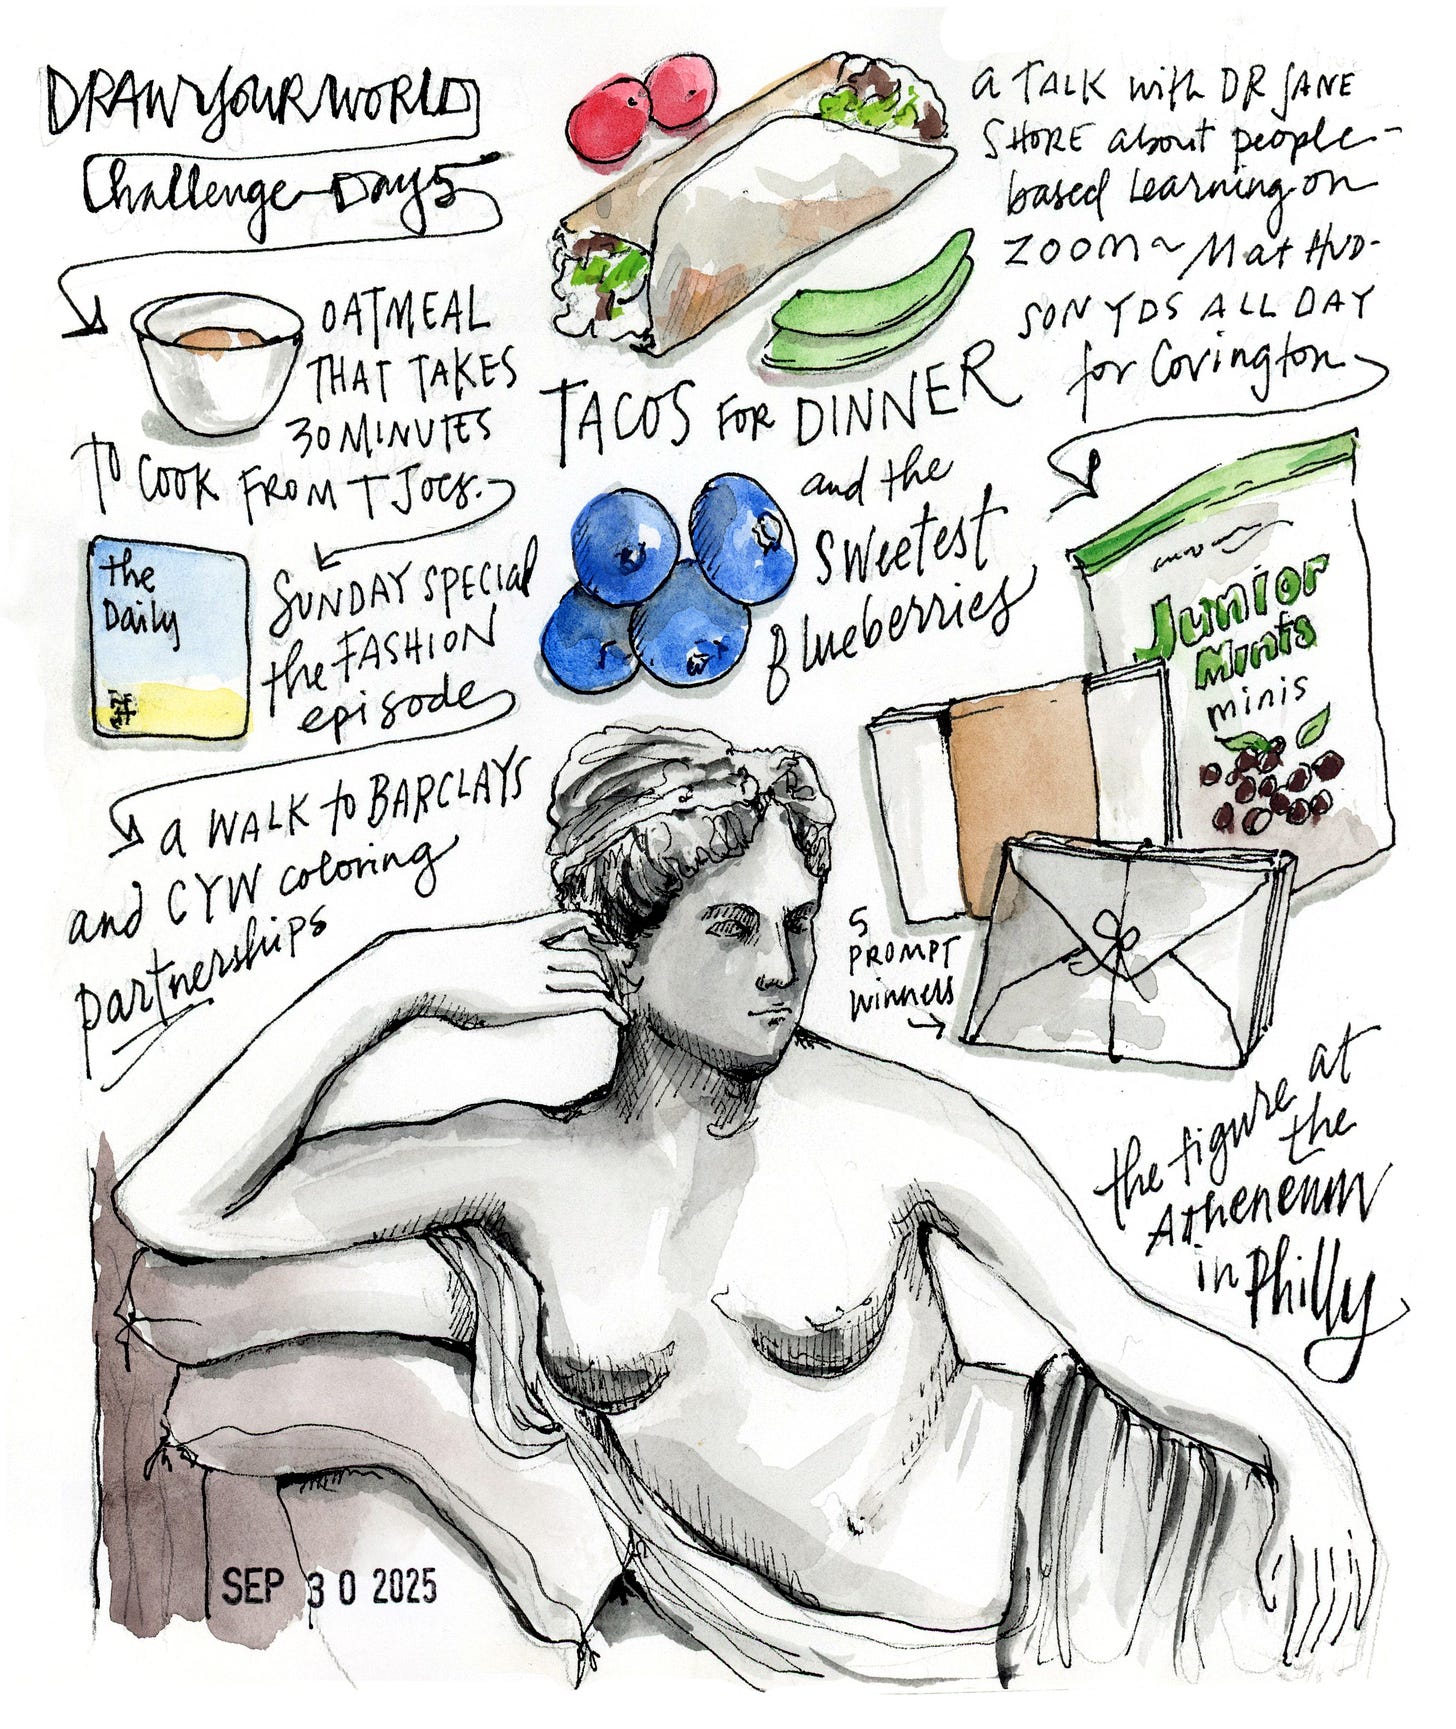 DRAW YOUR WORLD
Challenge Day 5
OATMEAL
THAT TAKES
30 MINUTES
TO COOK FROM T JOES.
the
Daily
SUNDAY SPECIAL
the FASHION
episode
a WALK to BARCLAYS
and CYW coloring
partnerships
TACOS FOR DINNER
and the
SWEETEST
Blueberries
a TALK with DR JANE
SHORE about people-
based Learning on
ZOOM ~ Mat HUD-
SON YDS ALL DAY
for Covington
Junior
Mints
minis
5
PROMPT
winners
the figure at
the
Atheneum
in Philly
SEP 30 2025